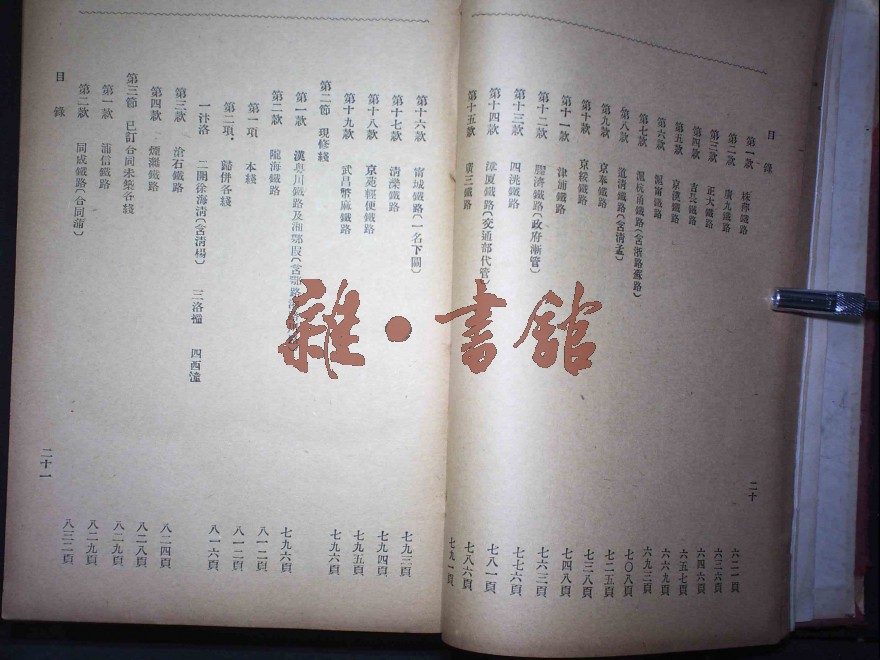 目錄
第一款 株萍鐵路 六二一頁
第二款 廣九鐵路 六三六頁
第三款 正太鐵路 六四六頁
第四款 吉長鐵路 六五七頁
第五款 京漢鐵路 六六九頁
第六款 滬甯鐵路 六九三頁
第七款 滬杭甬鐵路(含浙路蘇路) 七〇八頁
第八款 道淸鐵路(含淸孟) 七二五頁
第九款 京奉鐵路 七三八頁
第十款 京綏鐵路 七四八頁
第十一款 津浦鐵路 七六三頁
第十二款 膠濟鐵路(政府漸管) 七七六頁
第十三款 四洮鐵路 七八一頁
第十四款 漳厦鐵路(交通部代管 七八六頁
第十五款 廣三鐵路 七九一頁
二十
第十六款 甯城鐵路(一名下關) 七九三頁
第十七款 淸灤鐵路 七九四頁
第十八款 京苑輕便鐵路 七九五頁
第十九款 武昌幣麻鐵路 七九六頁
第二節 現修綫
第一款 漢粤川鐵路及湘鄂股(含鄂路 七九六頁
第二款 隴海鐵路 八一二頁
第一項 本綫 八一二頁
第二項 歸併各綫 八一六頁
一汴洛 二開徐海淸(含淸楊) 三洛潼 四西潼
第三款 滄石鐵路 八二四頁
第四款 煙濰鐵路 八二八頁
第三節 已訂合同未築各綫 八二九頁
第一款 浦信鐵路 八二九頁
第二款 同成鐵路(合同蒲) 八三二頁
目錄
二十一
雜·書館